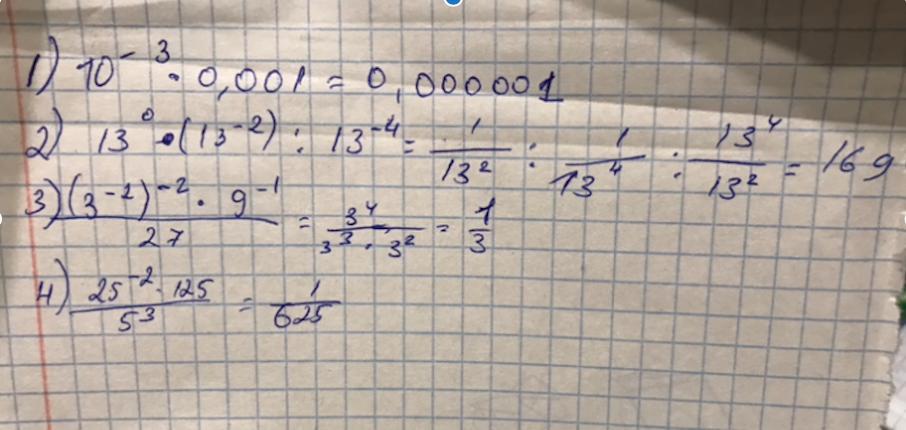 1) 10⁻³ · 0,001 = 0,000001
2) 13⁰ · (13⁻²) : 13⁻⁴ = 1/13² : 1/13⁴ : 13⁴/13² = 169
3) (3⁻²)⁻² · 9⁻¹ / 27 = 3⁴ / 3³ · 3² = 1/3
4) 25⁻² · 125 / 5³ = 1/625